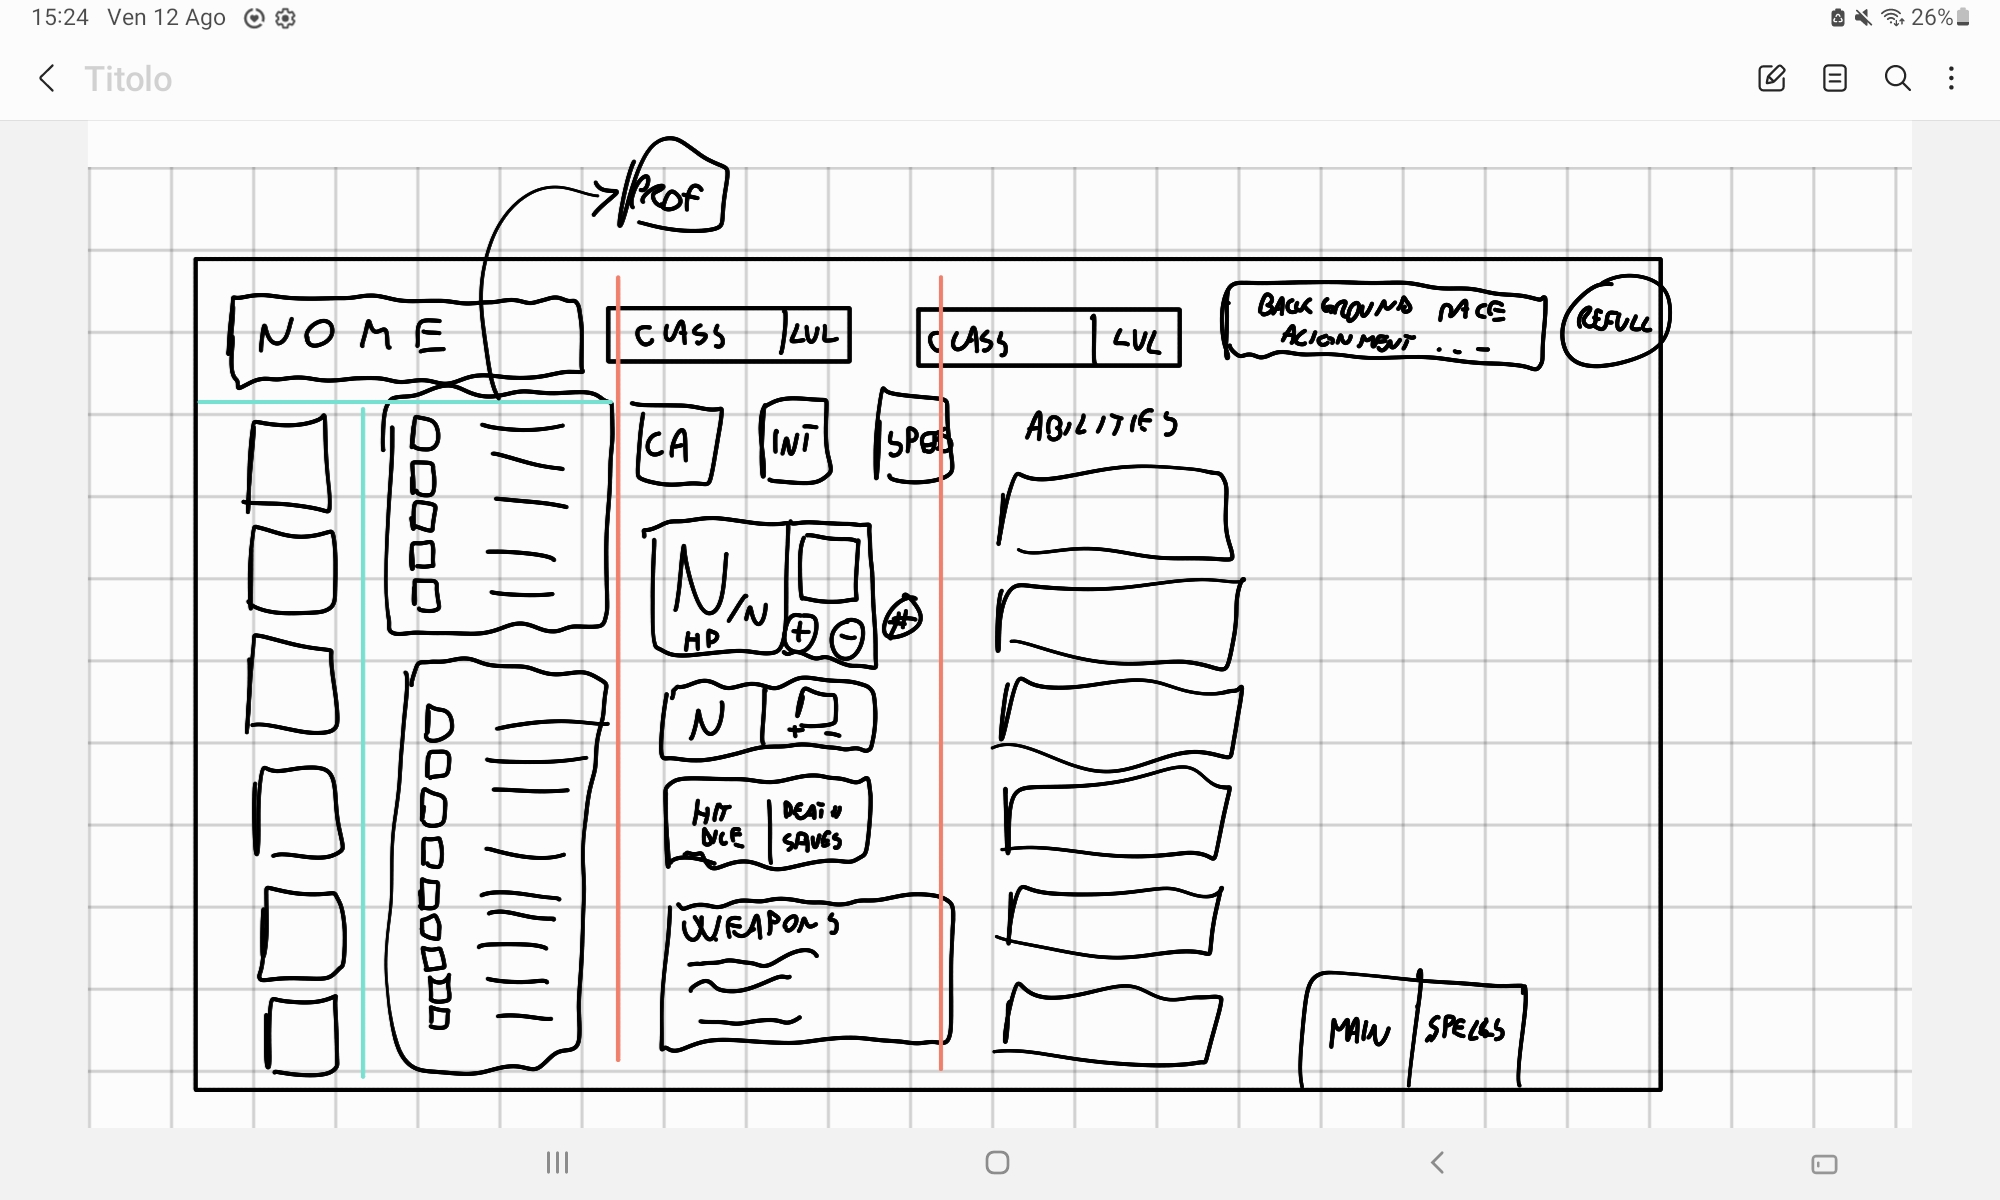 15:24 Ven 12 Ago
26%
Titolo
PROF
NOME
CLASS LVL
CLASS LVL
BACKGROUND RACE
ALIGNMENT ...
REFULL
CA
INT
SPEE
ABILITIES
N/N
HP
+ -
#
N
+ -
HIT
DICE
DEATH
SAVES
WEAPONS
MAIN
SPELLS